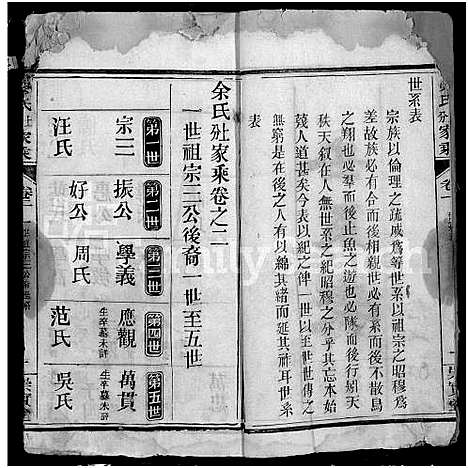 世系表
宗族以倫理之疏戚為等世系以祖宗之昭穆為
差故族必有屬而後相親世必有系而後不散鳥
之翔也必羣而後止魚之遊也必隊而後行矧天
秩天敘在人無世系之紀昭穆之分乎其忘本
殘人道甚矣今表以紀之俾一世以至世世傳之
無窮則在後之人有以綿其緒而延其祚耳世系
表
余氏𡉏家乘卷之二
一世祖宗三公後裔 一世至五世
第一世
宗三
汪氏
第二世
振公
好公
第三世
學義
周氏
第四世
應觀
生卒墓未詳
范氏
第五世
萬貫
生卒墓未詳
吳氏